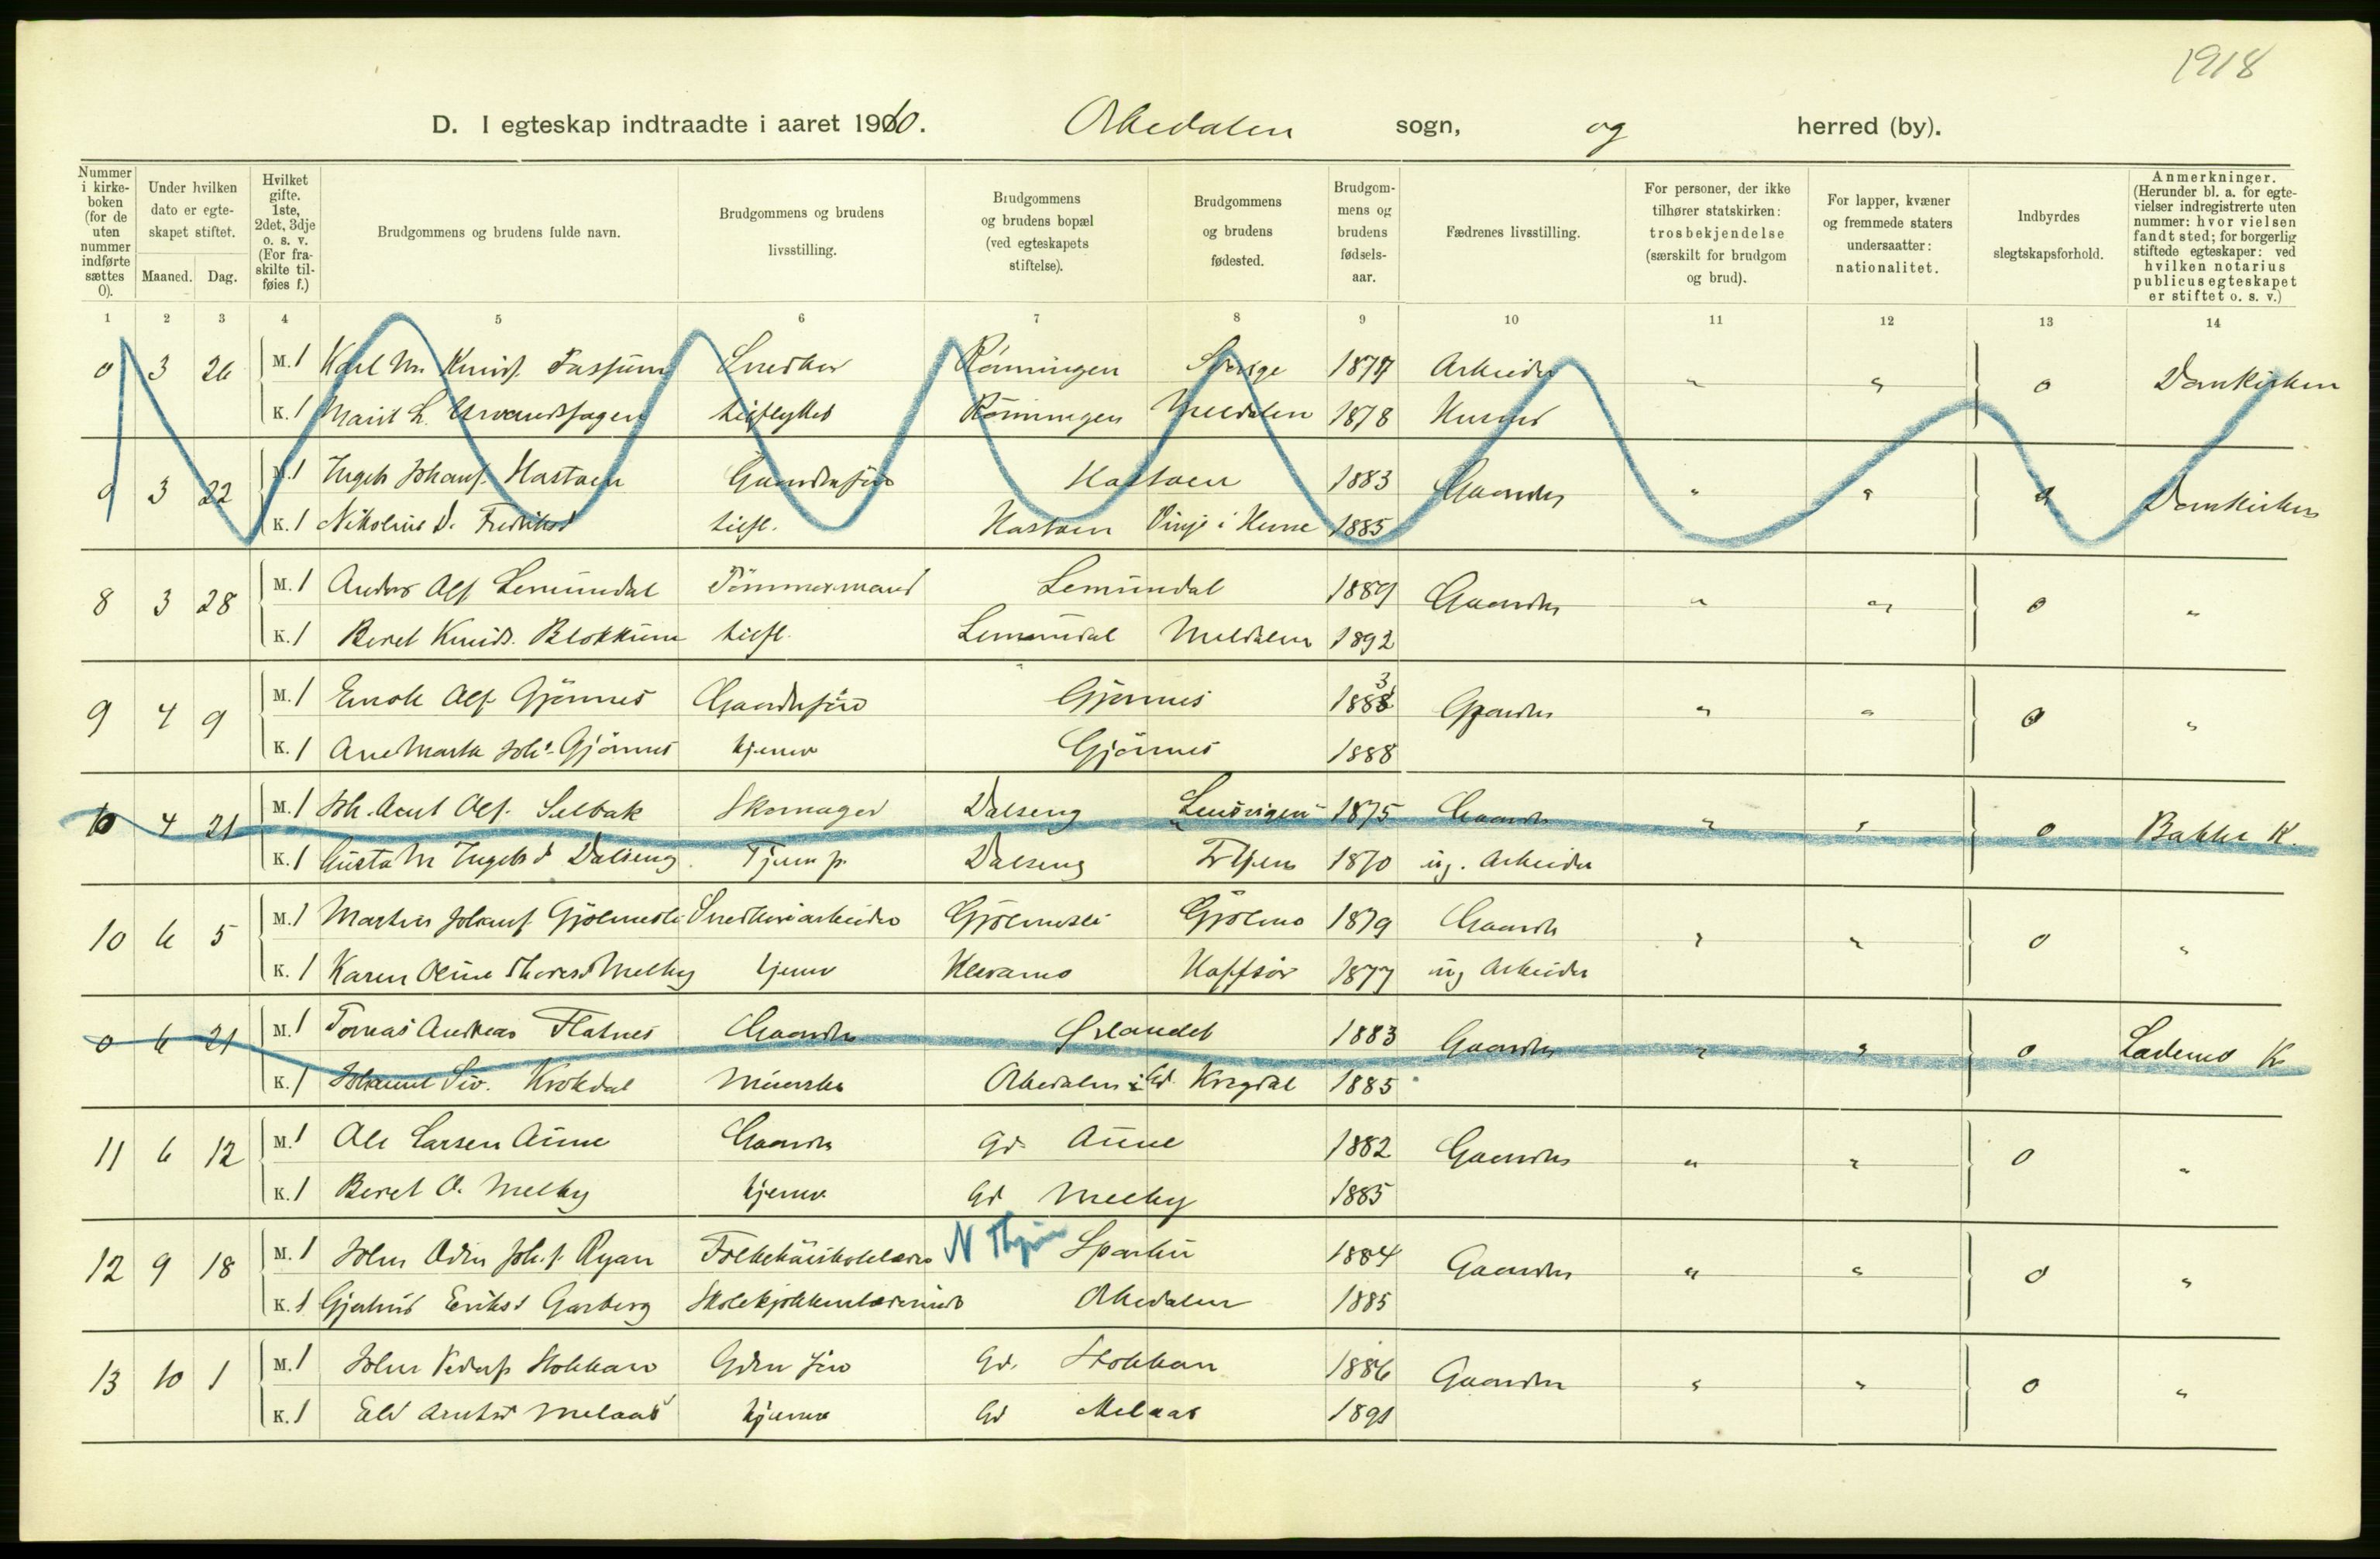 1918
D. I egteskap indtraadte i aaret 1910. Orkedalen sogn, og herred (by).
Nummer i kirke-boken (for de uten nummer indførte sættes 0).
Under hvilken dato er egte-skapet stiftet.
Maaned. Dag.
Hvilket gifte. 1ste, 2det, 3dje o. s. v. (For fra-skilte til-føies f.)
Brudgommens og brudens fulde navn.
Brudgommens og brudens livsstilling.
Brudgommens og brudens bopæl (ved egteskapets stiftelse).
Brudgommens og brudens fødested.
Brudgom-mens og brudens fødsels-aar.
Fædrenes livsstilling.
For personer, der ikke tilhører statskirken: trosbekjendelse (særskilt for brudgom og brud).
For lapper, kvæner og fremmede staters undersaatter: nationalitet.
Indbyrdes slegtskapsforhold.
Anmerkninger. (Herunder bl. a. for egte-vielser indregistrerte uten nummer: hvor vielsen fandt sted; for borgerlig stiftede egteskaper: ved hvilken notarius publicus egteskapet er stiftet o. s. v.)
1 2 3 4 5 6 7 8 9 10 11 12 13 14
0 3 26 M. 1 Karl M. Knuds. Snedker Rønningen Sverige 1877 Arbeider " " 0 Domkirken
K. 1 Marit L. Rønningen Meldalen 1878 Husmd
0 3 22 M. 1 Ingeb Johans. Hastaen Gaardmfører Hastaen 1883 Gaardbr " " 0 Domkirken
K. 1 Nikoline D. Fredriksd Hastaen Vinje i Hevne 1885
8 3 28 M. 1 Anders Alf Lemundal Tömmermand Lemundal 1889 Gaardbr " " 0 "
K. 1 Beret Knuds. Blokkum Lemundal Meldalen 1892
9 4 9 M. 1 Enok Gjönnes Gjönnes 1883 Gaardbr " " 0 "
K. 1 Ane Marta Joh. Gjönnes hjemv Gjönnes 1888
10 4 21 M. 1 Joh. Arnt Selbak Skomager Dalseng Lensvigen 1875 Gaardbr " " 0 Bakke K.
K. 1 Gusta M Ingebd Dalseng Tjen p. Dalseng Trhjem 1870 ug. Arbeider
10 6 5 M. 1 Martin Johans Gjölmesli Snedkeriarbeider Gjölmesli Gjölmo 1879 Gaardbr " " 0 "
K. 1 Karen Oline Thoresd Melby hjemv Klevamo 1877 ug Arbeider
0 6 21 M. 1 Tomas Andreas Flatnes Gaardbr Ørlandet 1883 Gaardbr " " 0 Lademo K
K. 1 Siv. Krokdal Orkedalen Gd 1885
11 6 12 M. 1 Ole Larsen Aune Gaardbr Gd Aune 1882 Gaardbr " " 0 "
K. 1 Beret O. Melby hjemv. Gd Melby 1885
12 9 18 M. 1 John Odin Joh. s. Ryan Folkehöiskolelærer N Thjem Sparbu 1884 Gaardbr " " 0 "
K. 1 Gjertrud Eriksd Garberg Skolekjökkenlærerinde Orkedalen 1885
13 10 1 M. 1 John Peders Stokkan Gd. Stokkan 1886 Gaardbr " " 0 "
K. 1 Eli Arntsd Melaas hjemv Gd Melaas 1891